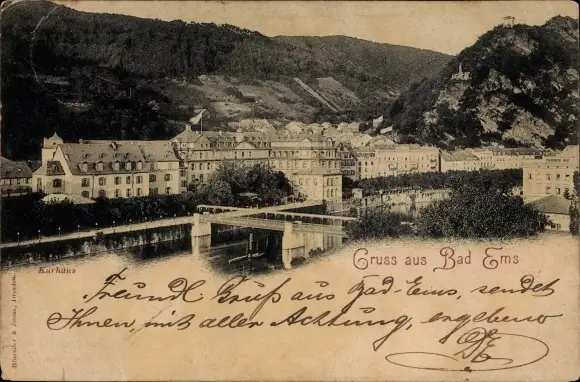 Kurhaus
Gruss aus Bad Ems
Freundl. Gruß aus Bad-Ems, sendet
Ihnen, mit aller Achtung, ergebenst
Dresden.